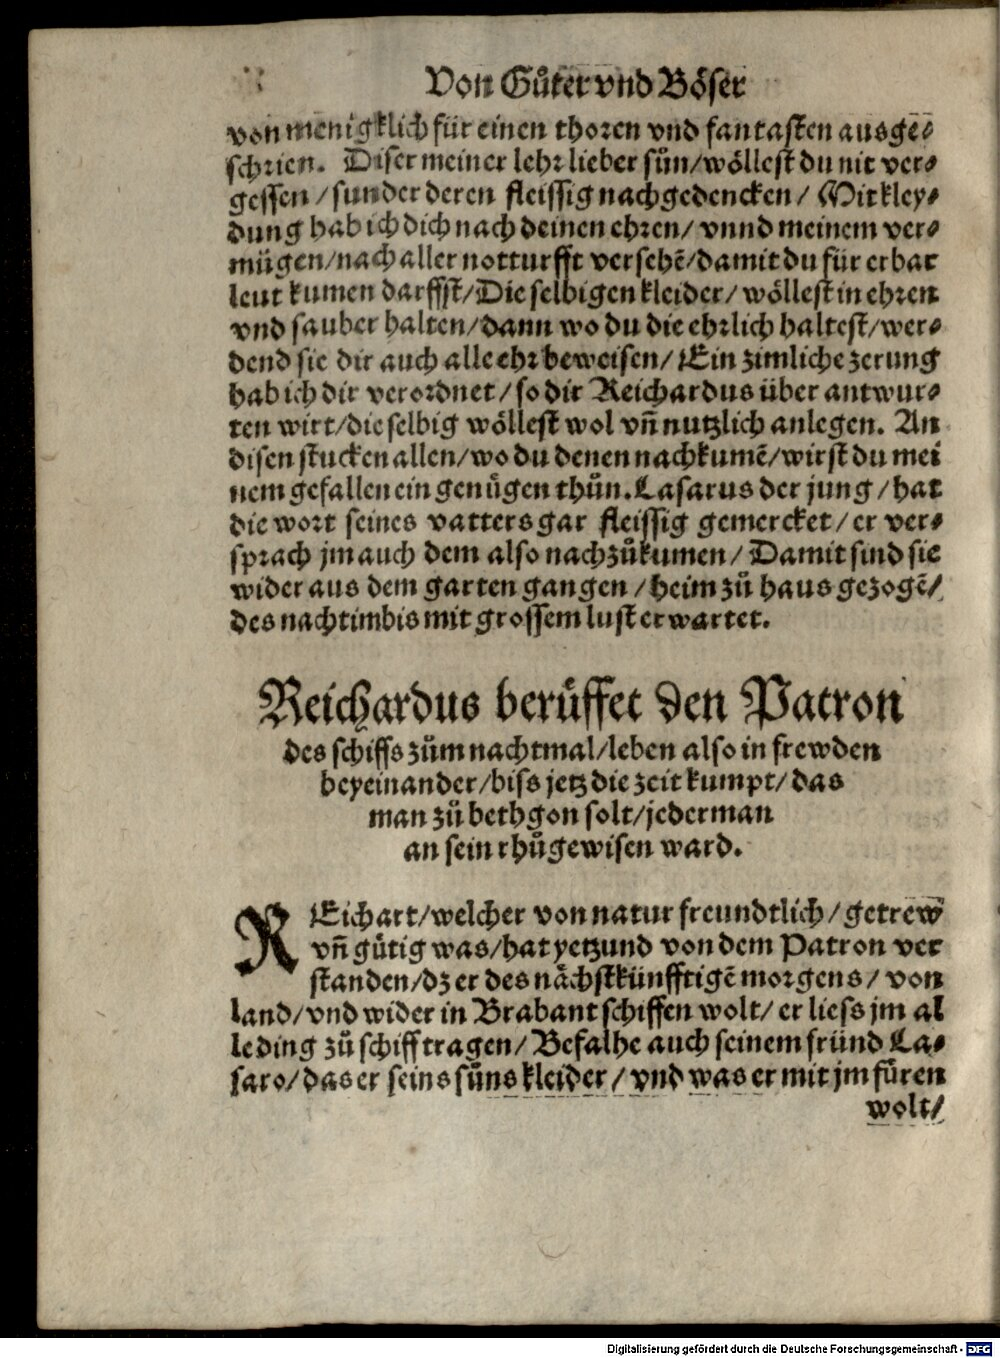 Von Gůter vnd Böser
von menigklich für einen thoren vnd fantasten ausge⸗
schrien. Diser meiner lehr lieber sůn/wöllest du nit ver⸗
gessen/sunder deren fleissig nachgedencken/Mit kley⸗
dung hab ich dich nach deinen ehren/vnnd meinem ver⸗
mügen/nach aller notturfft versehē/damit du für erbar
leut kumen darffst/Die selbigen kleider/wöllest in ehren
vnd sauber halten/dann wo du die ehrlich haltest/wer⸗
dend sie dir auch alle ehr beweisen/Ein zimliche zerung
hab ich dir verordnet/so dir Reichardus über antwur⸗
ten wirt/die selbig wöllest wol vñ nutzlich anlegen. An
disen stucken allen/wo du denen nachkumē/wirst du mei
nem gefallen ein genügen thůn. Lasarus der jung/hat
die wort seines vatters gar fleissig gemercket/er ver⸗
sprach jm auch dem also nachzůkumen/Damit sind sie
wider aus dem garten gangen/heim zů haus gezogē/
des nachtimbis mit grossem lust erwartet.
Reichardus berůffet den Patron
des schiffs zům nachtmal/leben also in frewden
beyeinander/biss jetz die zeit kumpt/das
man zů beth gon solt/jederman
an sein rhůgewisen ward.
REichart/welcher von natur freundtlich/getrew
vñ gütig was/hat yetzund von dem Patron ver
standen/dz er des nächstkünfftigē morgens/von
land/vnd wider in Brabant schiffen wolt/er liess jm al
le ding zů schiff tragen/Befalhe auch seinem fründ La⸗
saro/das er seins sůns kleider/vnd was er mit jm fůren
wolt/
Digitalisierung gefördert durch die Deutsche Forschungsgemeinschaft - DFG